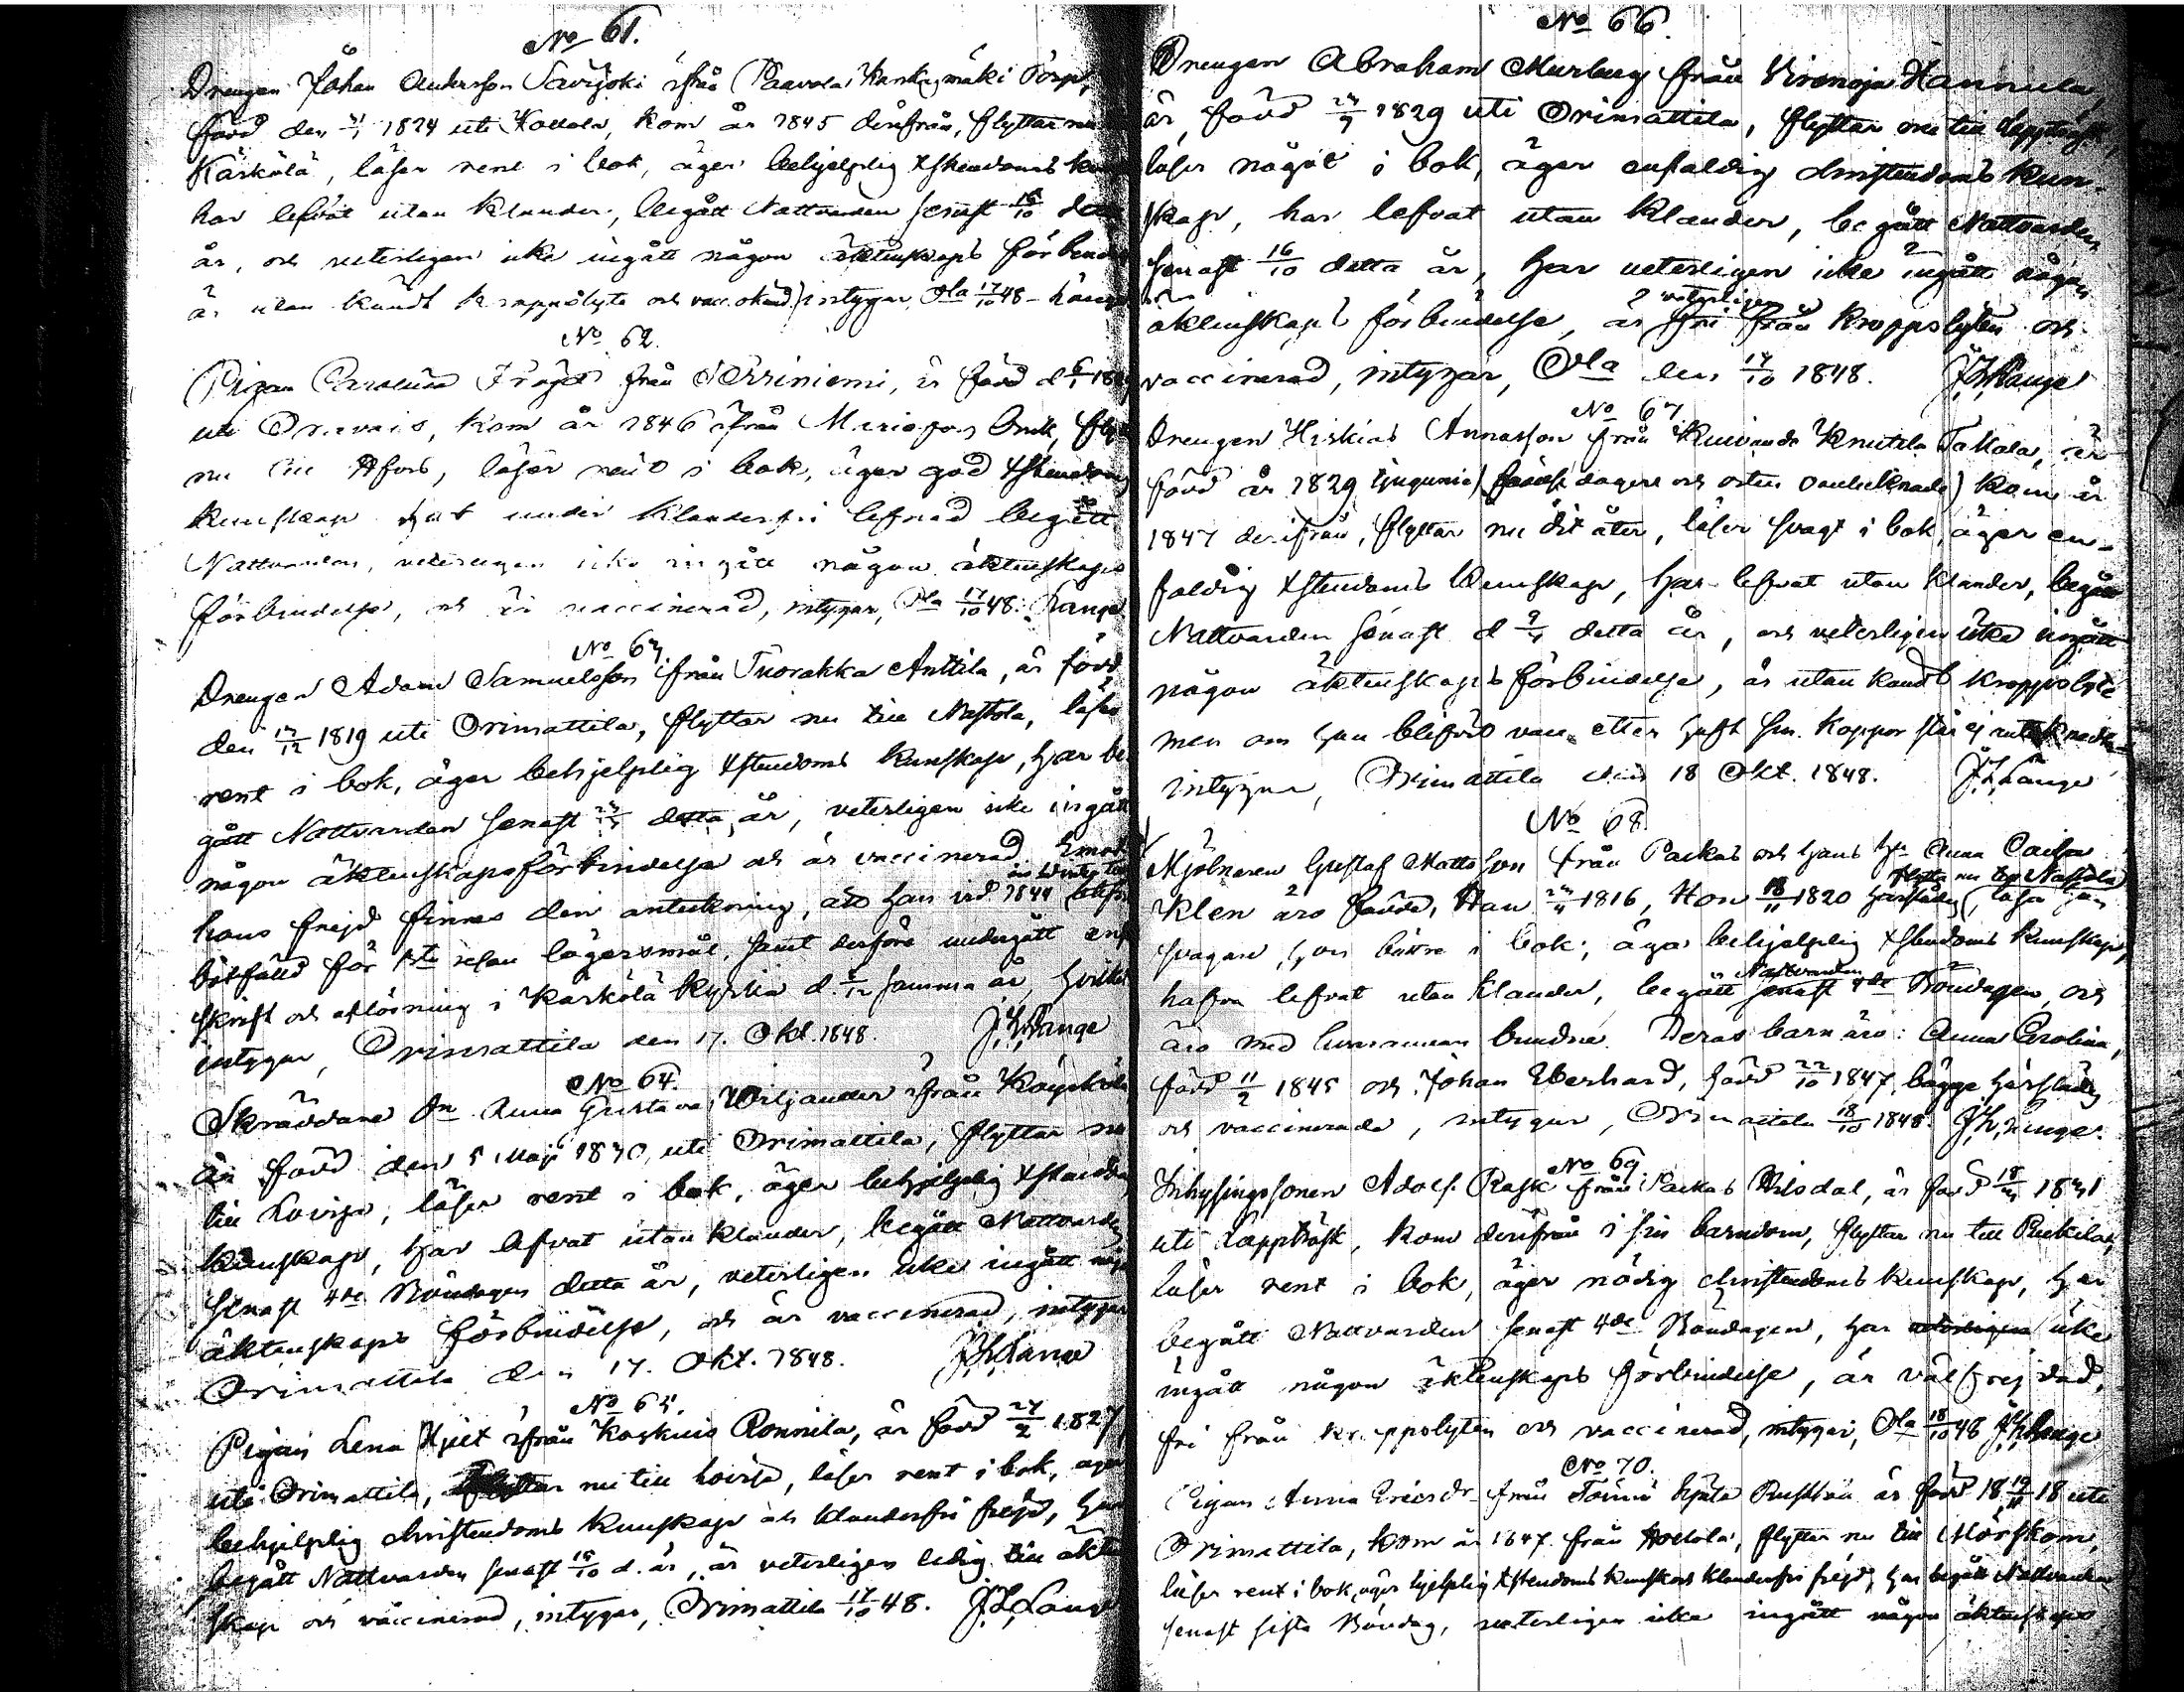 No 61.
Drengen Johan Andersson Savijoki ifrån Paavola Kankaanmäki Torp,
född den 1824 uti Hollola, kom år 1845 derifrån, flyttar nu
Kärkölä, läser rent i bok, äger behjelplig Xstendoms
har lefvat utan klander, begått Nattvarden senast 15/10 detta
år, och veterligen icke ingått någon äktenskaps förbindelse
är utan kändt kroppslyte och vacc. intygar, Ola 17/10 48
No 62.
Pigan Carolina från är född d
uti Oravais, kom år 1846 ifrån
nu till Hfors, läser rent i bok, äger god Xstendoms
kunskap har under klanderfri lefnad begått
Nattvarden, veterligen icke ingått någon äktenskaps
förbindelse, och är vaccinerad, intygar, Ola 17/10 48. Lange
No 63
Drengen Adam Samuelsson ifrån Tuorakka Anttila, är född
den 1819 uti Orimattila, flyttar nu till Nastola, läser
rent i bok, äger behjelplig Xstendoms kunskap, har be
gått Nattvarden senast detta år, veterligen icke ingått
någon äktenskapsförbindelse och är vaccinerad. Emot
hans frejd finnes den anteckning, att han vid 1844 blifvit
bötfälld för 1sta resan lägersmål, samt derföre undergått enf
skrift och aflösning i Kärkölä Kyrka d. samma år, hvilket
intygar, Orimattila den 17. Okt. 1848. J. H. Lange
No 64.
Skräddare Dn Anna Gustava Wiljander ifrån Käyräkälä
är född den 5 Maji 1830, uti Orimattila, flyttar nu
till Lovisa, läser rent i bok, äger behjelplig Xstendoms
kunskap, har lefvat utan klander, begått Nattvarden
senast 4de Böndagen detta år, veterligen icke ingått någon
äktenskaps förbindelse, och är vaccinerad, intygar
Orimattila den 17. Okt. 1848. J. H. Lange
No 65.
Pigan Lena Hjelt ifrån Koskus Ronnila, är född 24/2 1827,
uti Orimattila, flyttar nu till Lovisa, läser rent i bok, äger
behjelplig christendoms kunskap och klanderfri frejd, har
begått Nattvarden senast 15/10 d. år, är veterligen ledig till äkten
skap och vaccinerad, intygar, Orimattila 17/10 48. J. H. Lange
No 66.
Drengen Abraham Murberg från Virenoja Hannula,
är född 1829 uti Orimattila, flyttar nu till Lappträsk,
läser något i bok, äger enfaldig christendoms kun-
skap, har lefvat utan klander, begått Nattvarden
senast 16/10 detta år, har veterligen icke ingått någon
äktenskaps förbindelse, är veterligen fri från kroppslyten och
vaccinerad, intygar, Ola den 17/10 1848. J. H. Lange
No 67
Drengen Hiskias Annasson från Kuivanda Knutila Tallola, är
född år 1829 dagen och orten oantecknade) kom år
1847 derifrån, flyttar nu dit åter, läser svagt i bok, äger en-
faldig Xstendoms kunskap, har lefvat utan klander, begått
Nattvarden senast d detta år, och veterligen icke ingått
någon äktenskapsförbindelse, är utan kändt kroppslyte
men om han blifvit vacc. eller haft sm. koppor står ej antecknadt
intygar, Orimattila den 18 Okt. 1848. J. H. Lange
No 68.
Mjölnaren Gustaf Mattsson från Packas och hans hu Anna Caisa
Klen äro födde, Han 1816, Hon 18/11 1820 härstädes, flytta nu till Nastola, läser han
svagare, hon bättre i bok; äga behjelplig Xstendoms kunskap,
hafva lefvat utan klander, begått Nattvarden senast 4de Böndagen, och
äro med hvarannan bundna. Deras barn äro: Anna Carolina,
född 11/2 1845 och Johan Eberhard, född 22/10 1847, bägge härstädes
och vaccinerade, intygar, Orimattila 18/10 1848. J. H. Lange.
No 69
Inhysingssonen Adolf Rask från Packas Nilsdal, är född 1831
uti Lappträsk, kom derifrån i sin barndom, flyttar nu till Ruskila
läser rent i bok, äger nödig christendoms kunskap, har
begått Nattvarden senast 4de Böndagen, har veterligen icke
ingått någon äktenskaps förbindelse, är välfrejdad,
fri från kroppslyten och vaccinerad, intygar, Ola 18/10 48 J. H. Lange
No 70.
Pigan Anna Ericsdr från Tönnö är född 18 18 uti
Orimattila, kom år 1847 från Hollola, flyttar nu till Mörskom,
läser rent i bok, äger hjelplig Xstendoms kunskap och klanderfri frejd, har begått Nattvarden
senast sista Böndag, veterligen icke ingått någon äktenskaps